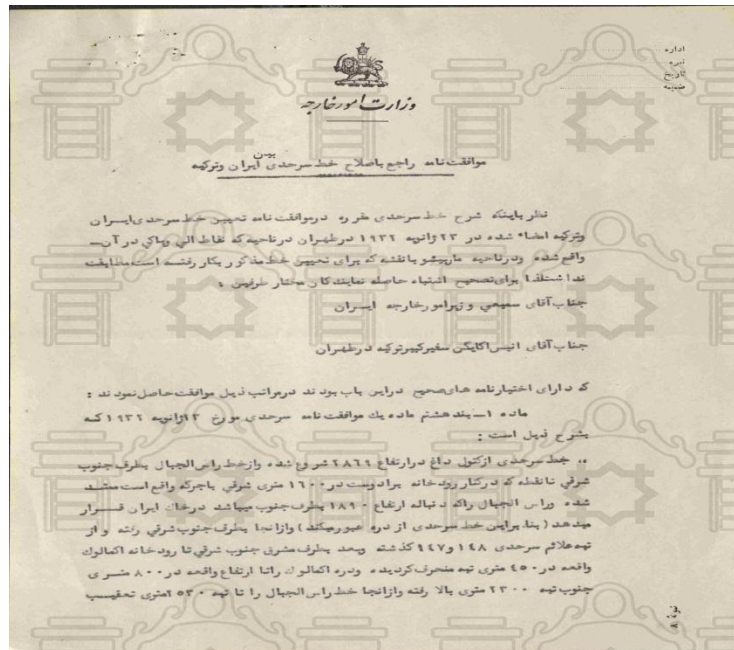 اداره
نمره
تاریخ
ضمیمه
وزارت امور خارجه
موافقت نامه راجع باصلاح خط سرحدی بین ایران وترکیه
نظر باینکه شرح خط سرحدی مقرره درموافقت نامه تعیین خط سرحدی ایران
وترکیه امضاء شده در ۲۳ ژانویه ۱۹۳۲ درطهران درناحیه که نقاط الی وماکی در آن
واقع شده ودرناحیه مارییشو بانقشه که برای تعیین خط مذکور بکار رفته است مطابقت
نداشتلذا برای تصحیح اشتباه حاصله نمایندگان مختار طرفین :
جناب آقای سمیعی وزیرامورخارجه ایران
جناب آقای انیس اکایگن سفیرکبیرترکیه درطهران
که دارای اختیارنامه های صحیح دراین باب بودند درمراتب ذیل موافقت حاصل نمودند :
ماده ۱ــ بند هشتم ماده یک موافقت نامه سرحدی مورخ ۲۳ژانویه ۱۹۳۲ که
بشرح ذیل است :
،، خط سرحدی ازکتول داغ درارتفاع ۲۸۶۹ شروع شده وازخط راس الجبال بطرف جنوب
شرقی تانقطه که درکنار رودخانه برادوست در ۱۶۰۰ متری شرقی باجرکه واقع است ممتد
شده وراس الجبال راکه دنباله ارتفاع ۱۸۹۰ بطرف جنوب میباشد درخاک ایران قرار
میدهد (بنابراین خط سرحدی از دره عبورمیکند) وازانجا بطرف جنوب شرقی رفته و از
تپه علائم سرحدی ۱۴۸ و۱۴۷ گذشته وبعد بطرف مشرق جنوب شرقی تا رودخانه اکمالوک
واقعه در ۴۵۰ متری تپه منحرف گردیده ودره اکمالوک راتا ارتفاع واقعه در ۸۰۰ متری
جنوب تپه ۲۳۰۰ متری بالا رفته وازانجا خط راس الجبال را تا تپه ۱۵۳۰ متری تعقیب